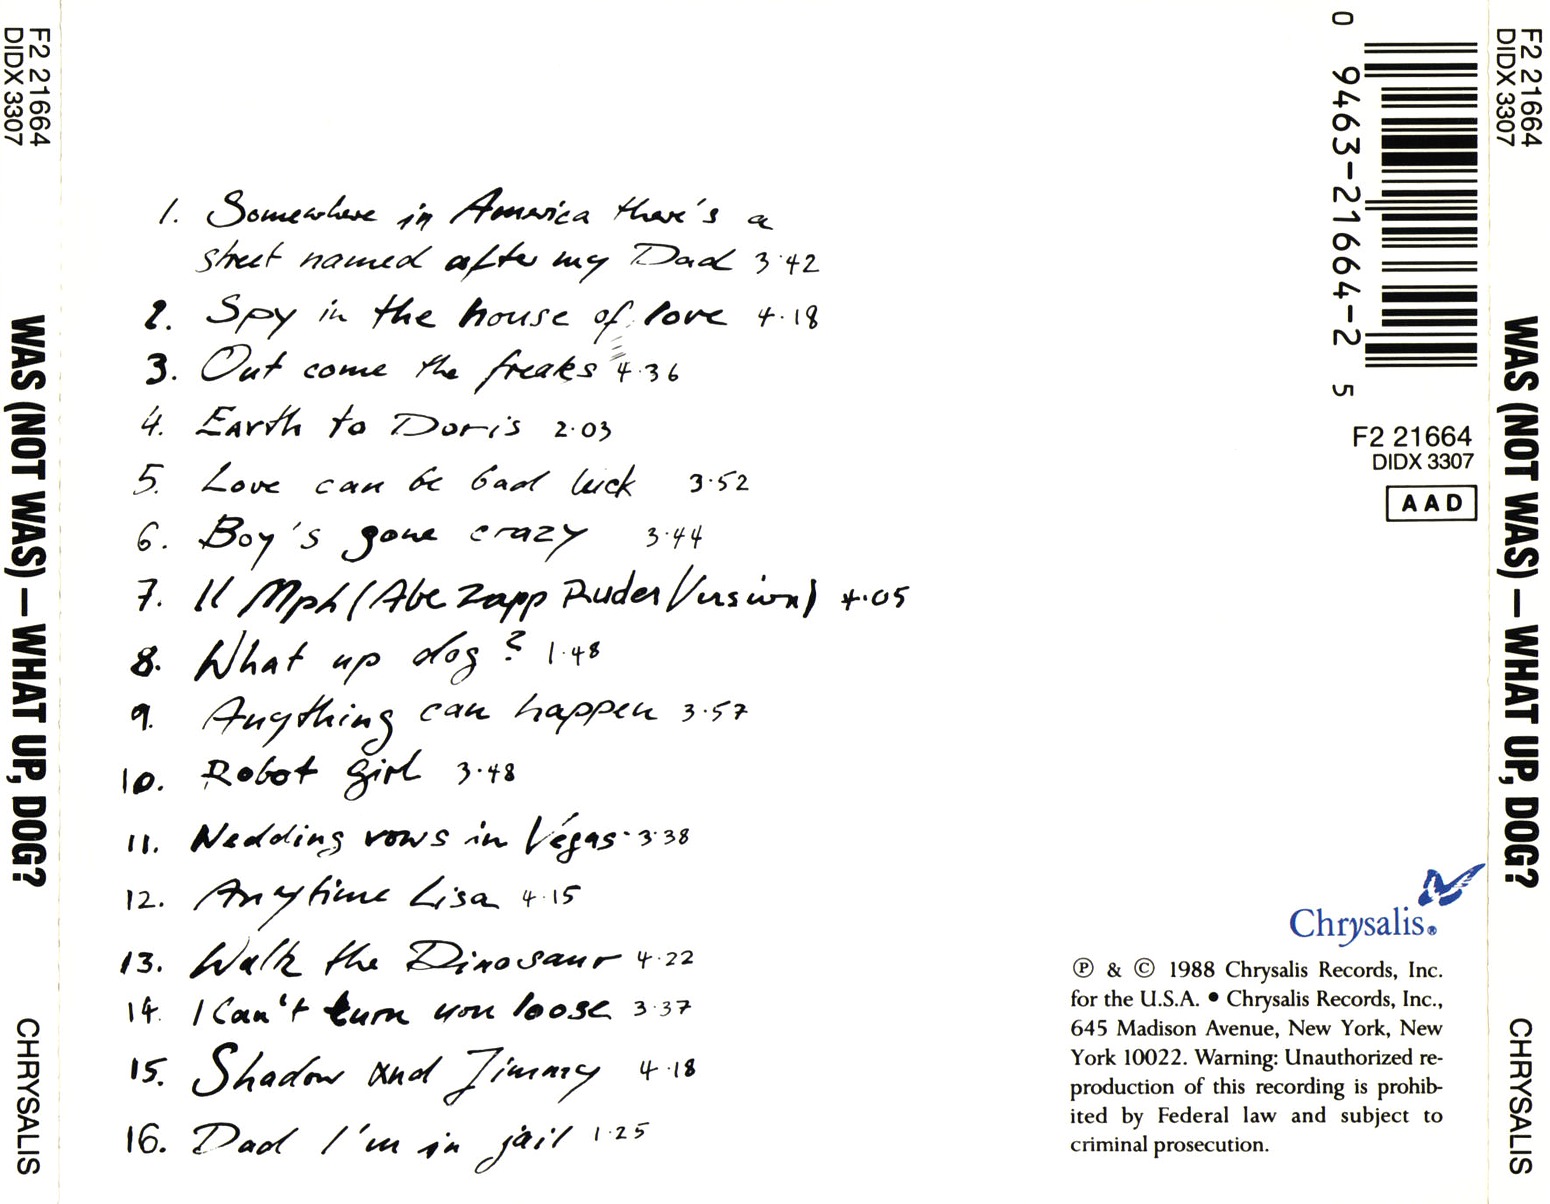 F2 21664
DIDX 3307
WAS (NOT WAS) — WHAT UP, DOG?
CHRYSALIS
1. Somewhere in America there's a
street named after my Dad 3·42
2. Spy in the house of love 4·18
3. Out come the freaks 4·36
4. Earth to Doris 2·03
5. Love can be bad luck 3·52
6. Boy's gone crazy 3·44
7. 11 Mph (Abe Zapp Ruder Version) 4·05
8. What up dog? 1·48
9. Anything can happen 3·57
10. Robot girl 3·48
11. Wedding vows in Vegas · 3·38
12. Anytime Lisa 4·15
13. Walk the Dinosaur 4·22
14. I Can't turn you loose 3·37
15. Shadow and Jimmy 4·18
16. Dad I'm in jail 1·25
0 9463-21664-2 5
F2 21664
DIDX 3307
AAD
Chrysalis®
℗ & © 1988 Chrysalis Records, Inc.
for the U.S.A. • Chrysalis Records, Inc.,
645 Madison Avenue, New York, New
York 10022. Warning: Unauthorized re-
production of this recording is prohib-
ited by Federal law and subject to
criminal prosecution.
F2 21664
DIDX 3307
WAS (NOT WAS) — WHAT UP, DOG?
CHRYSALIS